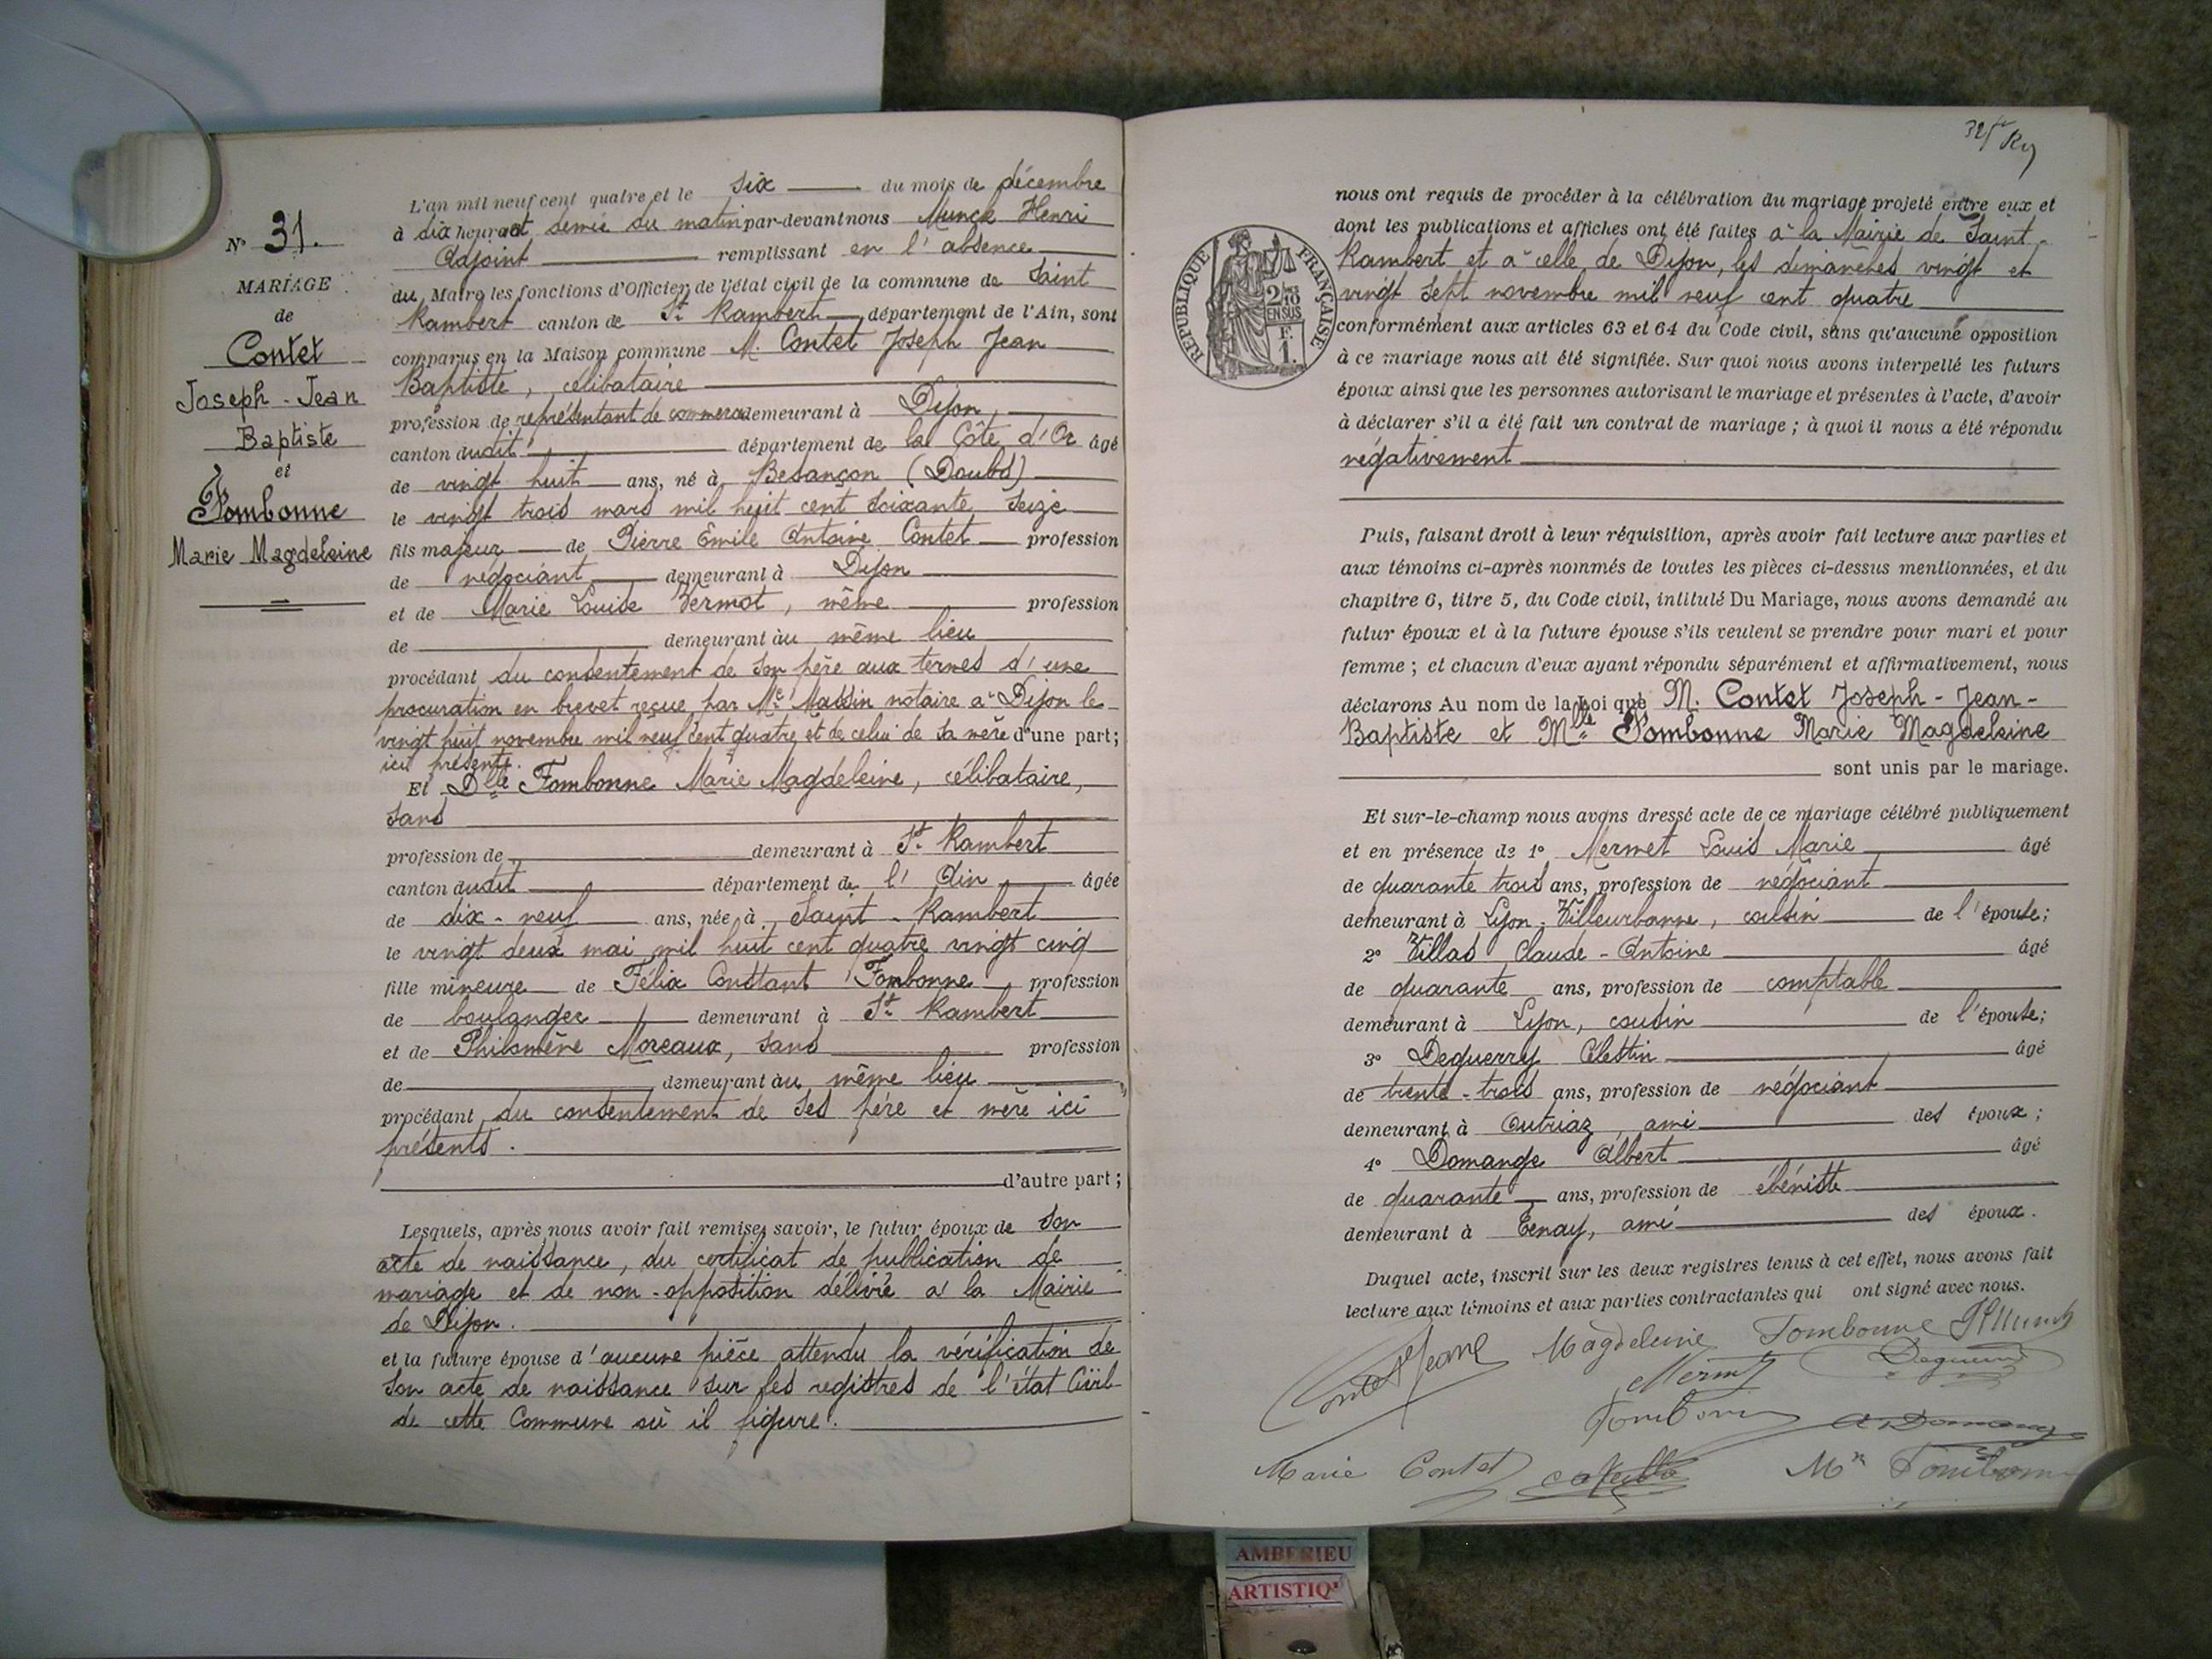 N° 31.
MARIAGE
de
Contet
Joseph-Jean
Baptiste
et
Fombonne
Marie Magdeleine
L'an mil neuf cent quatre et le six du mois de décembre
à dix heures et demie du matin par-devant nous Munck Henri
Adjoint remplissant en l'absence
du Maire les fonctions d'Officier de l'état civil de la commune de Saint
Rambert canton de St Rambert département de l'Ain, sont
comparus en la Maison commune M. Contet Joseph Jean
Baptiste, célibataire
profession de représentant de commerce demeurant à Dijon,
canton dudit département de la Côte d'Or âgé
de vingt huit ans, né à Besançon (Doubs)
le vingt trois mars mil huit cent soixante seize
fils majeur de Pierre Emile Antoine Contet profession
de négociant demeurant à Dijon
et de Marie Louise Vermot, même profession
de demeurant au même lieu
procédant du consentement de son père aux termes d'une
procuration en brevet reçue par Me Massin notaire à Dijon le
vingt huit novembre mil neuf cent quatre et de celui de sa mère d'une part;
ici présente.
Et Dlle Fombonne Marie Magdeleine, célibataire,
sans
profession de demeurant à St Rambert
canton dudit département de l'Ain âgée
de dix-neuf ans, née à Saint-Rambert
le vingt deux mai mil huit cent quatre vingt cinq
fille mineure de Félix Constant Fombonne profession
de boulanger demeurant à St Rambert
et de Philomène Moreaux, sans profession
de demeurant au même lieu
procédant du consentement de ses père et mère ici
présents.
d'autre part;
Lesquels, après nous avoir fait remise, savoir, le futur époux de son
acte de naissance, du certificat de publication de
mariage et de non-opposition délivré à la Mairie
de Dijon.
et la future épouse d'aucune pièce attendu la vérification de
son acte de naissance sur les registres de l'état Civil
de cette Commune où il figure.
RÉPUBLIQUE FRANÇAISE
2/10
EN SUS
F.
1.
nous ont requis de procéder à la célébration du mariage projeté entre eux et
dont les publications et affiches ont été faites à la Mairie de Saint-
Rambert et à celle de Dijon, les dimanches vingt et
vingt sept novembre mil neuf cent quatre
conformément aux articles 63 et 64 du Code civil, sans qu'aucune opposition
à ce mariage nous ait été signifiée. Sur quoi nous avons interpellé les futurs
époux ainsi que les personnes autorisant le mariage et présentes à l'acte, d'avoir
à déclarer s'il a été fait un contrat de mariage; à quoi il nous a été répondu
négativement
Puis, faisant droit à leur réquisition, après avoir fait lecture aux parties et
aux témoins ci-après nommés de toutes les pièces ci-dessus mentionnées, et du
chapitre 6, titre 5, du Code civil, intitulé Du Mariage, nous avons demandé au
futur époux et à la future épouse s'ils veulent se prendre pour mari et pour
femme; et chacun d'eux ayant répondu séparément et affirmativement, nous
déclarons Au nom de la Loi que M. Contet Joseph-Jean-
Baptiste et Mlle Fombonne Marie Magdeleine
sont unis par le mariage.
Et sur-le-champ nous avons dressé acte de ce mariage célébré publiquement
et en présence de 1° Mermet Louis Marie âgé
de quarante trois ans, profession de négociant
demeurant à Lyon-Villeurbanne, cousin de l'épouse;
2° Villas Claude-Antoine âgé
de quarante ans, profession de comptable
demeurant à Lyon, cousin de l'épouse;
3° Deguerry Célestin âgé
de trente-trois ans, profession de négociant
demeurant à Outriaz, ami des époux;
4° Domange Albert âgé
de quarante ans, profession de ébéniste
demeurant à Tenay, ami des époux.
Duquel acte, inscrit sur les deux registres tenus à cet effet, nous avons fait
lecture aux témoins et aux parties contractantes qui ont signé avec nous.
Contet Jeane Magdeleine Fombonne HMunck
Mermet Deguerry
Fombonne A. Domange
Marie Contet Me Fombonne
AMBERIEU
ARTISTIQ